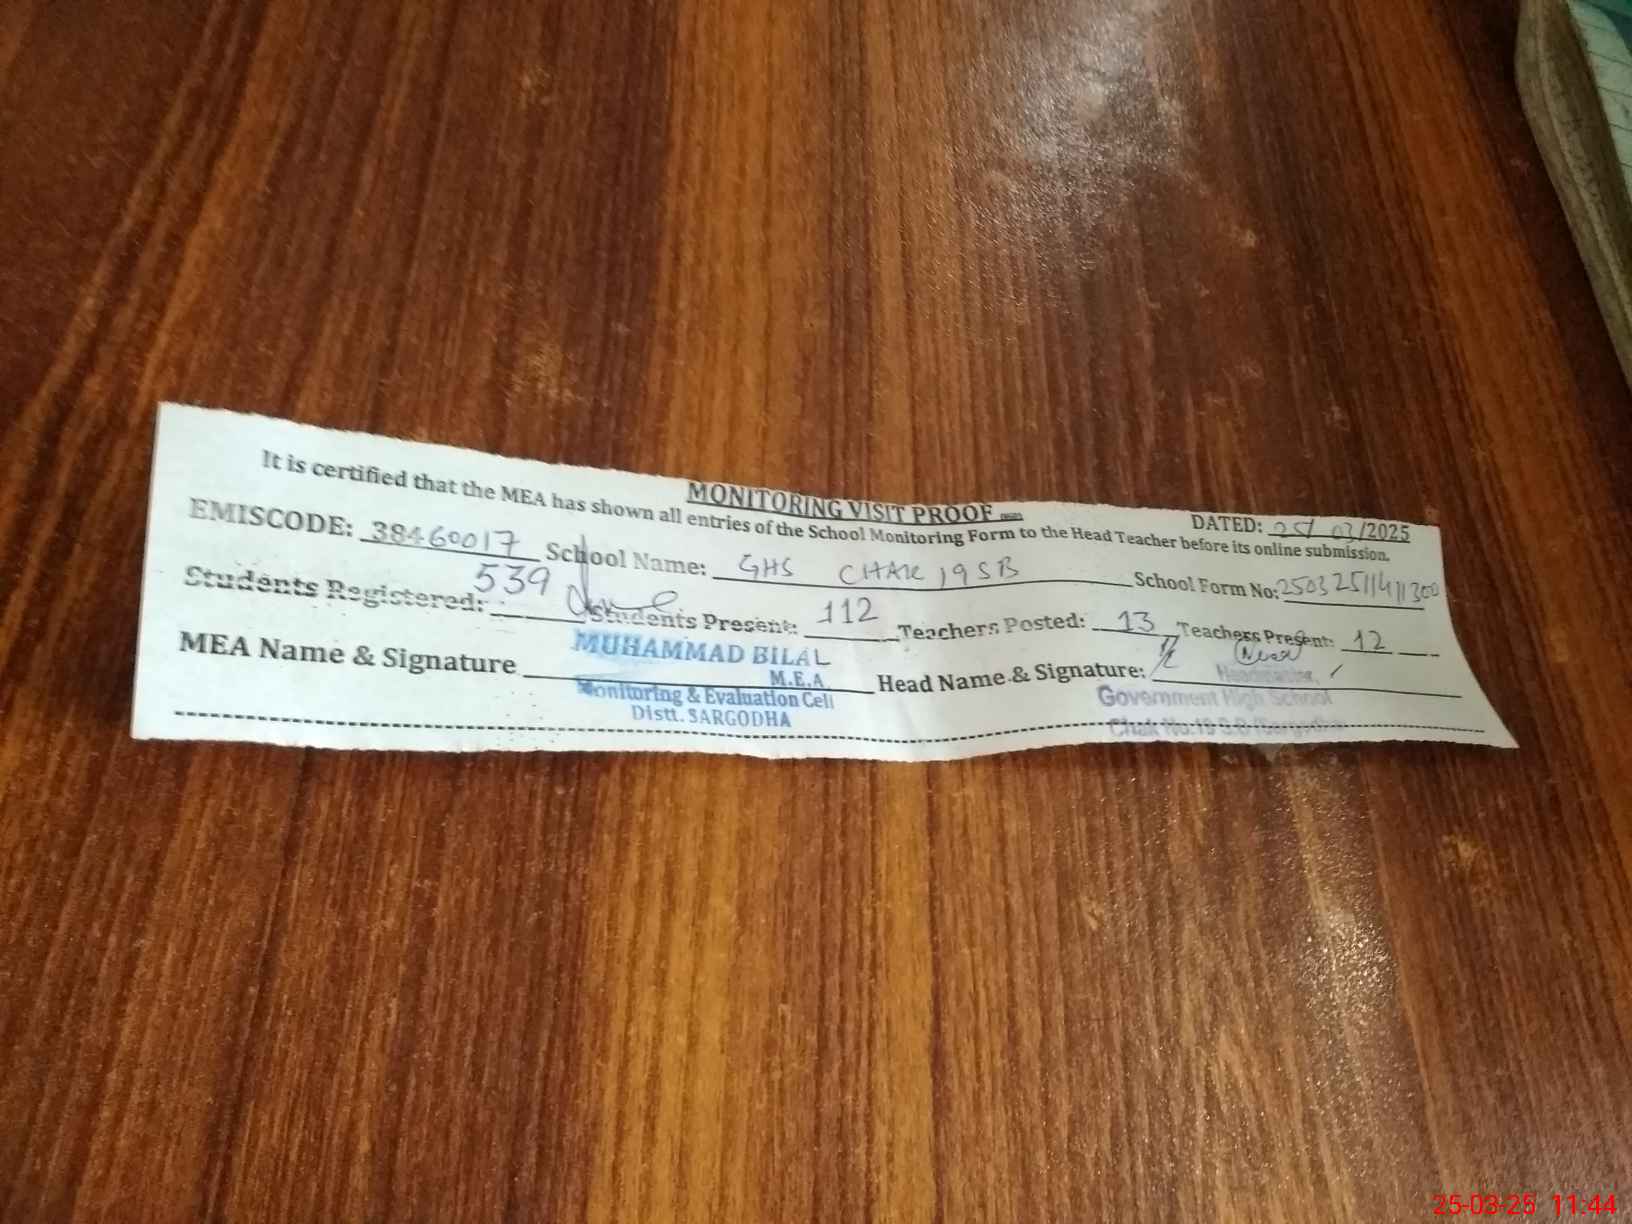 MONITORING VISIT PROOF
DATED: 25/ 03/2025
It is certified that the MEA has shown all entries of the School Monitoring Form to the Head Teacher before its online submission.
EMISCODE: 38460017 School Name: GHS CHAK 19 SB School Form No:
Students Registered: 539 Students Present: 112 Teachers Posted: 13 Teachers Present: 12
MEA Name & Signature MUHAMMAD BILAL Head Name & Signature:
M.E.A
Monitoring & Evaluation Cell
Distt. SARGODHA
Headmaster,
Government High School
Chak No.19 S.B
25-03-25 11:44